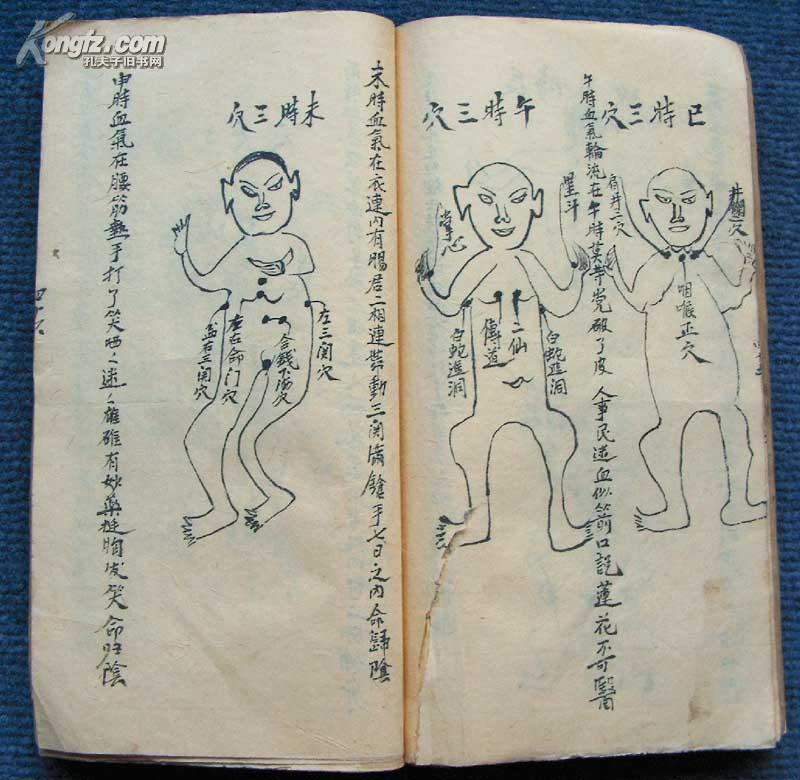 Kongfz.com
孔夫子旧书网
巳時三穴
井欄穴
肩井二穴
咽喉正穴
午時血氣輪流在午時莫等党破了皮 人事民迷血似箭口說蓮花不可醫
午時三穴
星斗
掌心
二仙
傳道
白蛇進洞
白蛇進洞
未時血氣在衣連内有腸居二相連帶動三関滿鎗手七日之内命歸陰
未時三穴
左三関穴
合錢下海穴
左右命门穴
盆右三関穴
申時血氣在腰筋熱手打了笑哂之迷々雄雖有妙藥挺胸发笑命归陰
四十六